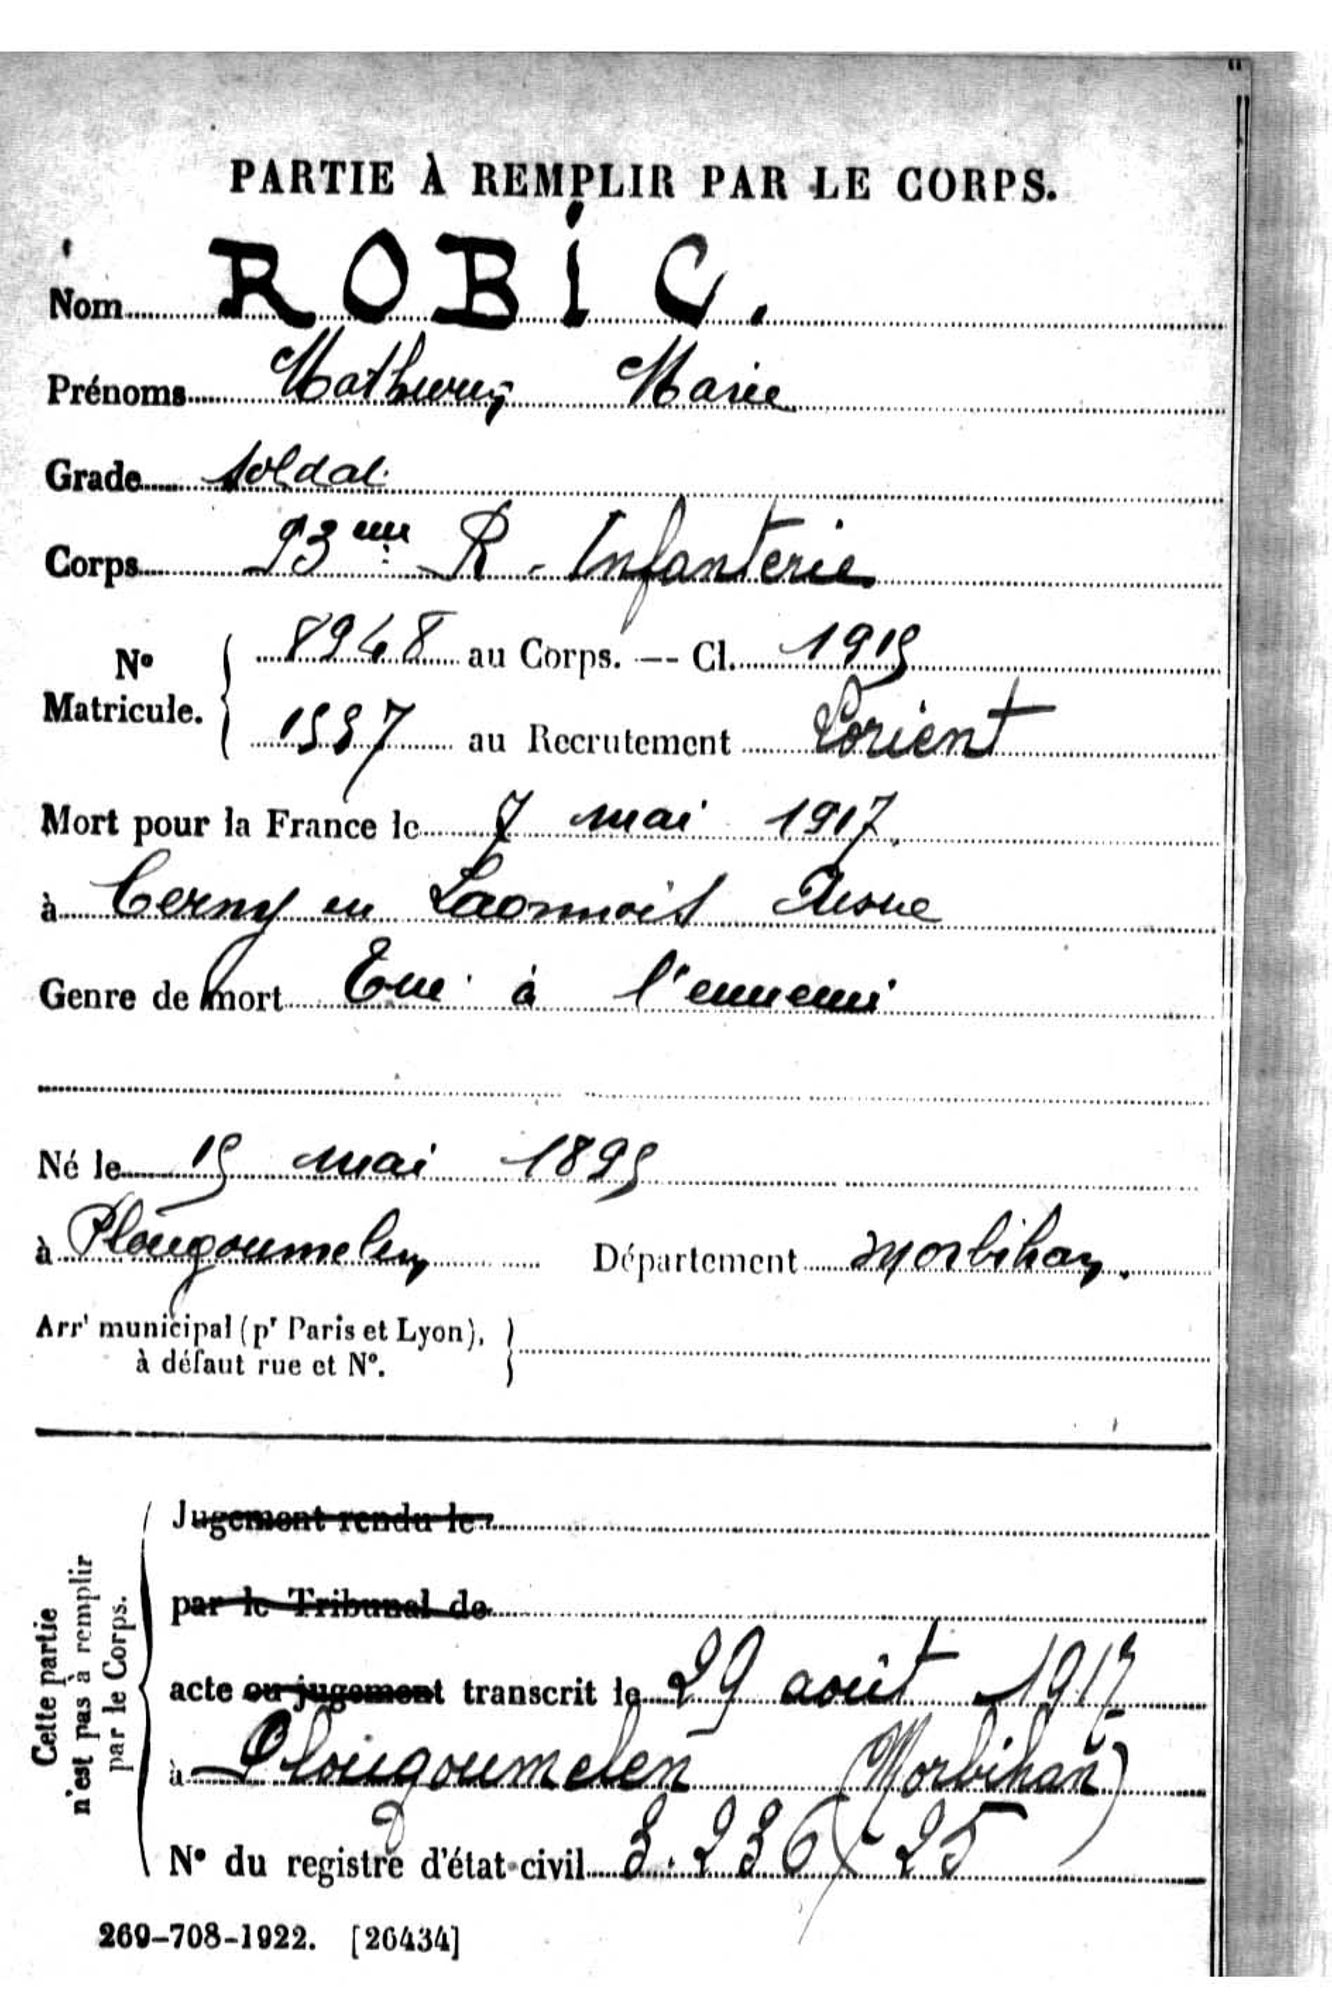 PARTIE À REMPLIR PAR LE CORPS.
Nom ROBIC.
Prénoms Mathurin Marie
Grade soldat
Corps 93ème R. Infanterie
N° Matricule. { 8948 au Corps. — Cl. 1915
1557 au Recrutement Lorient
Mort pour la France le 7 mai 1917
à Cerny en Laonnois Aisne
Genre de mort Tué à l'ennemi
Né le 15 mai 1895
à Plougoumelen Département Morbihan.
Arrt municipal (pr Paris et Lyon),
à défaut rue et N°.
Cette partie
n'est pas à remplir
par le Corps.
Jugement rendu le
par le Tribunal de
acte ou jugement transcrit le 29 août 1917
à Plougoumelen (Morbihan)
N° du registre d'état civil 3.236/25
269-708-1922. [26434]